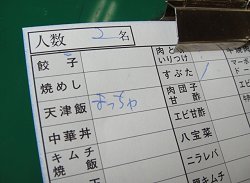 人数 2 名
餃子
焼めし
天津飯 まっちゃ
中華丼
キムチ焼飯
肉と
いりつけ
すぶた
肉団子
甘酢
エビ甘酢
八宝菜
ニラレバ
豚キムチ